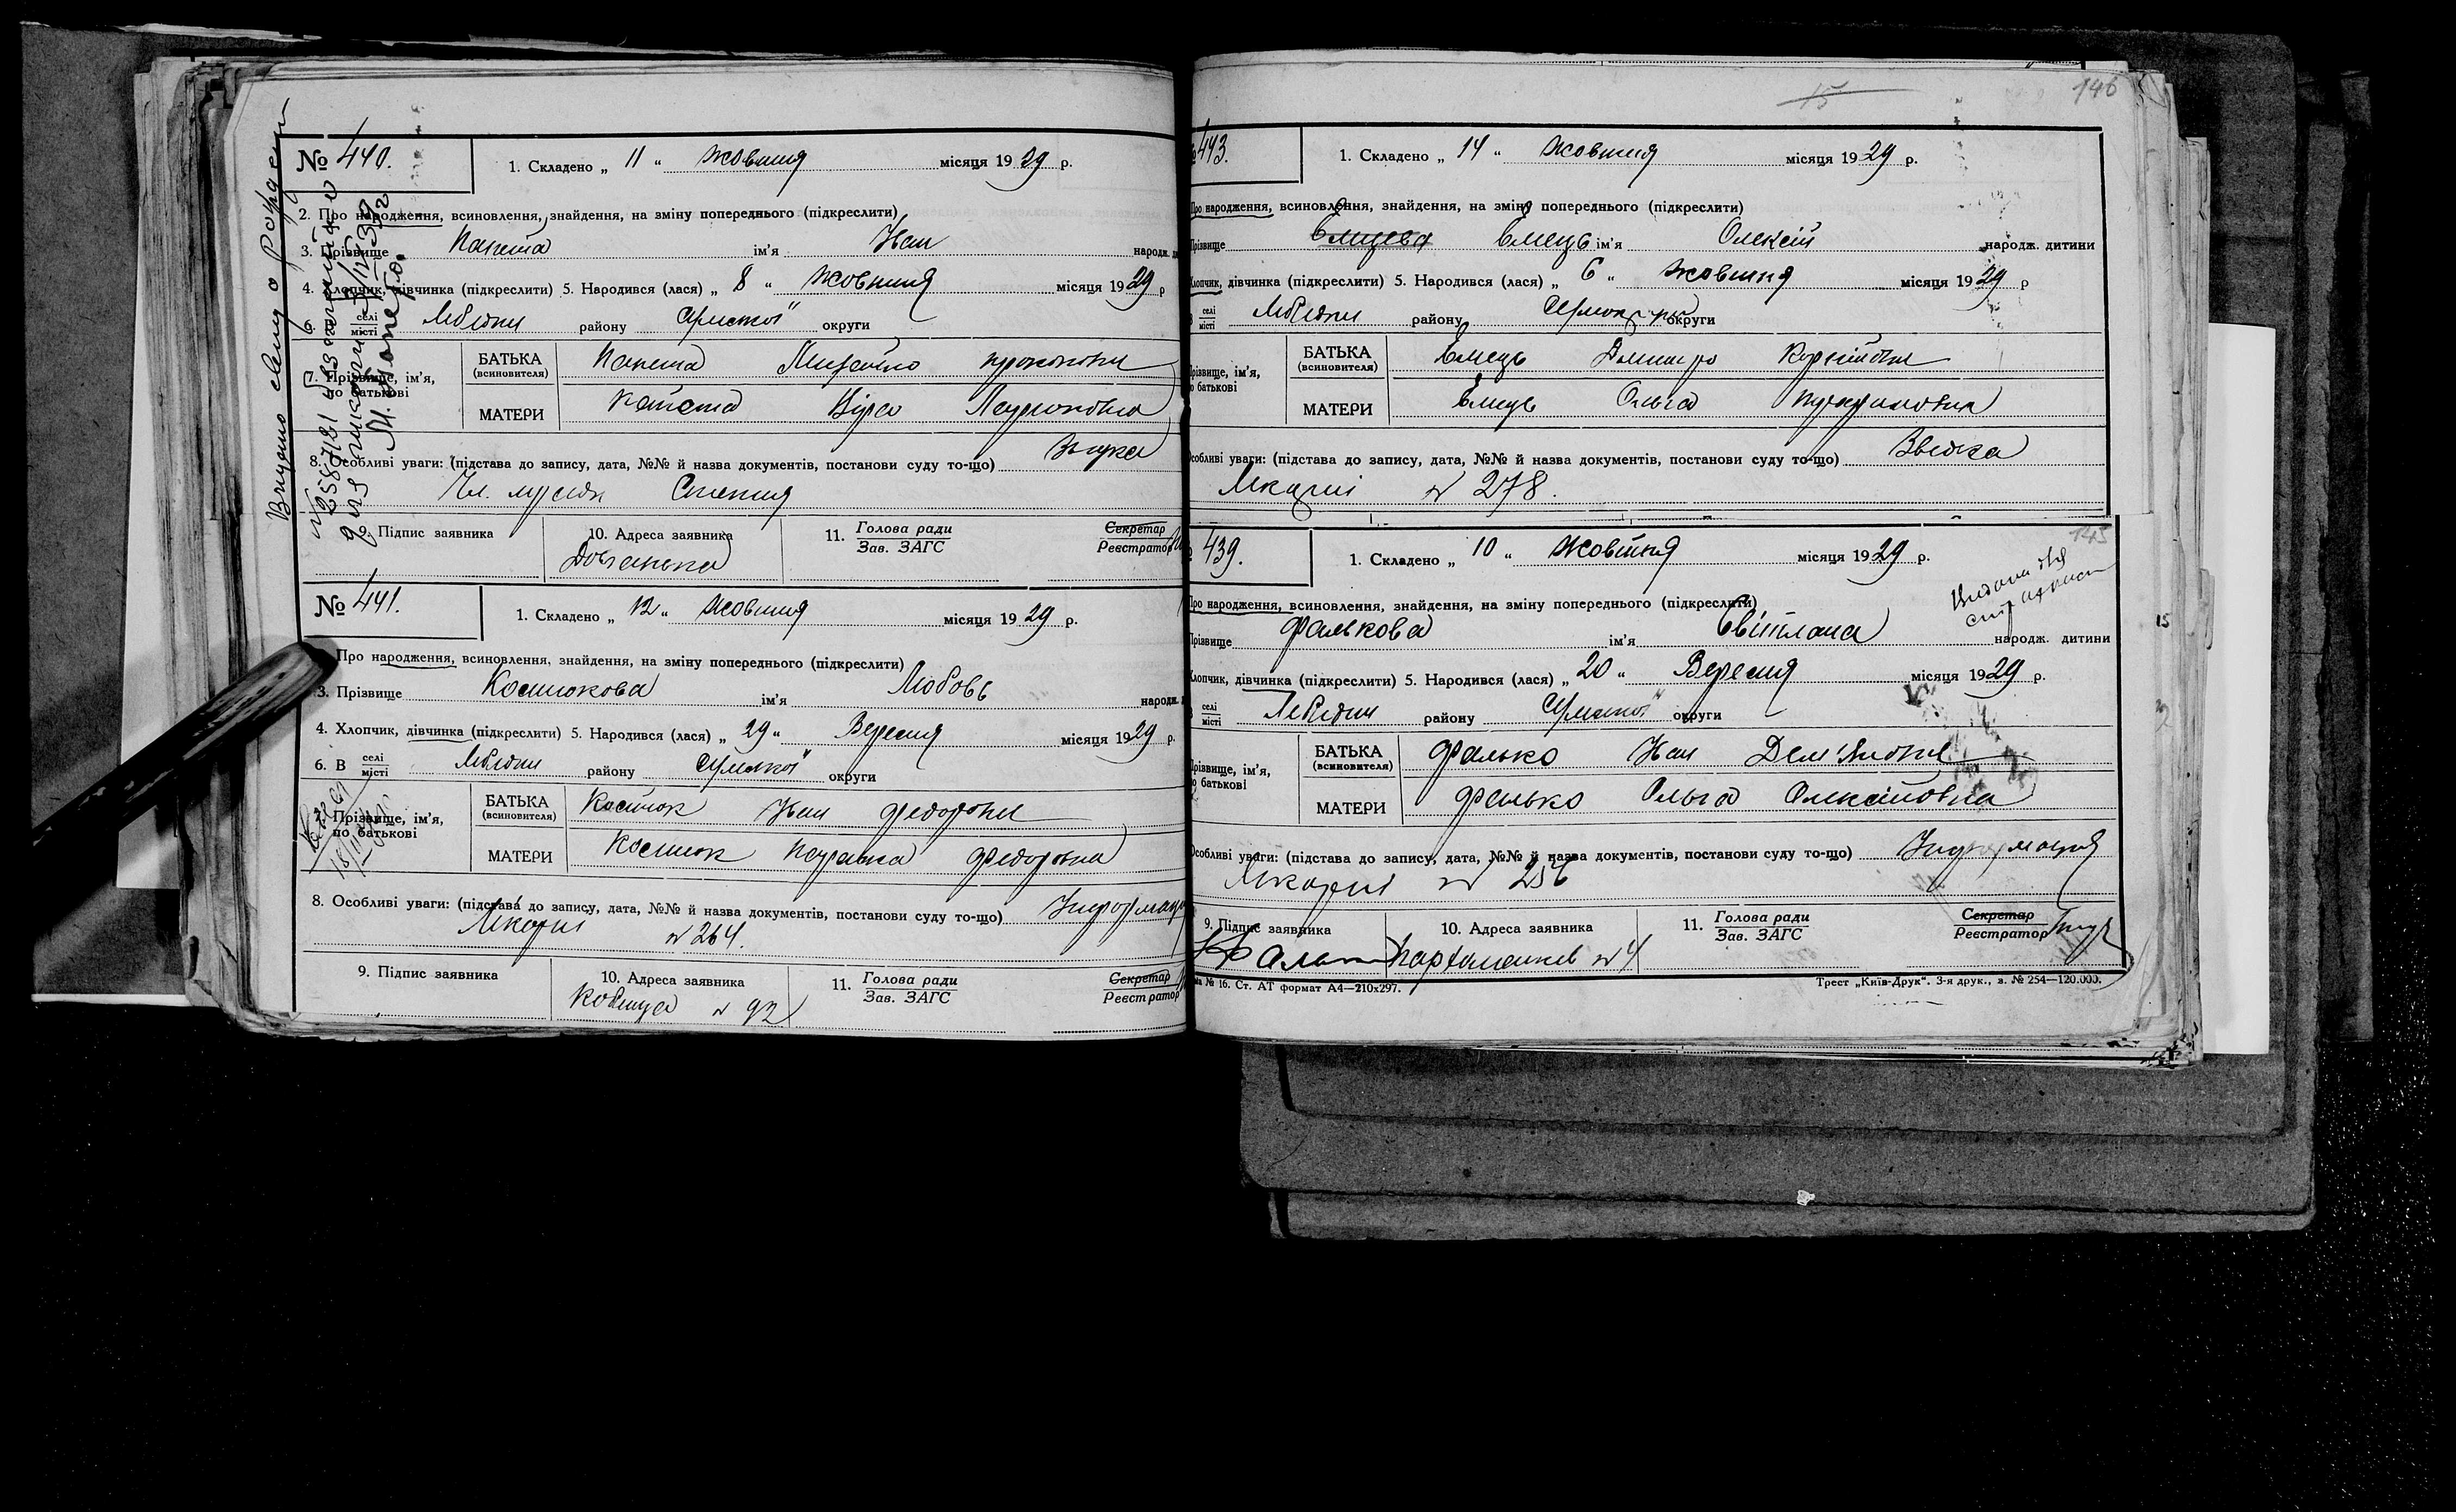 № 440.
1. Складено „ 11 “ жовтня місяця 1929 р.
2. Про народження, всиновлення, знайдення, на зміну попереднього (підкреслити)
3. Прізвище ім'я Іван народж.
4. Хлопчик, дівчинка (підкреслити) 5. Народився (лася) „ 8 “ жовтня місяця 1929 р
6. селі місті Лебедин району Сумської округи
7. Прізвище, ім'я, по батькові
БАТЬКА (всиновителя) Михайло
МАТЕРИ Віра
8. Особливі уваги: (підстава до запису, дата, №№ й назва документів, постанови суду то-що)
9. Підпис заявника 10. Адреса заявника 11. Голова ради Зав. ЗАГС Секретар Реєстратор
№ 441.
1. Складено „ 12 “ жовтня місяця 1929 р.
Про народження, всиновлення, знайдення, на зміну попереднього (підкреслити)
3. Прізвище Костюкова ім'я Любовь народж.
4. Хлопчик, дівчинка (підкреслити) 5. Народився (лася) „ 29 “ Вересня місяця 1929 р.
6. В селі місті Лебедин району Сумської округи
7. Прізвище, ім'я, по батькові
БАТЬКА (всиновителя) Костюк Іван Федорович
МАТЕРИ Костюк Федоровна
8. Особливі уваги: (підстава до запису, дата, №№ й назва документів, постанови суду то-що)
Лікарні № 264.
9. Підпис заявника 10. Адреса заявника 11. Голова ради Зав. ЗАГС Секретар Реєстратор
№ 92
15
146
443.
1. Складено „ 14 “ жовтня місяця 1929 р.
Про народження, всиновлення, знайдення, на зміну попереднього (підкреслити)
Прізвище Ємець ім'я Олексій народж. дитини
Хлопчик, дівчинка (підкреслити) 5. Народився (лася) „ 6 “ жовтня місяця 1929 р
селі місті Лебедин району округи
Прізвище, ім'я, по батькові
БАТЬКА (всиновителя) Ємець Дмитро
МАТЕРИ Ємець Ольга
Особливі уваги: (підстава до запису, дата, №№ й назва документів, постанови суду то-що) Звістка
Лікарні № 278.
145
439.
1. Складено „ 10 “ жовтня місяця 1929 р.
Про народження, всиновлення, знайдення, на зміну попереднього (підкреслити)
Прізвище Фалькова ім'я Світлана народж. дитини
Хлопчик, дівчинка (підкреслити) 5. Народився (лася) „ 20 “ Вересня місяця 1929 р.
селі місті Лебедин району Сумської округи
Прізвище, ім'я, по батькові
БАТЬКА (всиновителя) Фалько Іван Дем'янович
МАТЕРИ Фалько Ольга Олексійовна
Особливі уваги: (підстава до запису, дата, №№ й назва документів, постанови суду то-що) Інформація
Лікарні № 256
9. Підпис заявника 10. Адреса заявника 11. Голова ради Зав. ЗАГС Секретар Реєстратор
№ 4
№ 16. Ст. АТ формат А4—210x297. Трест „Київ-Друк“. 3-я друк., з. № 254—120.000.